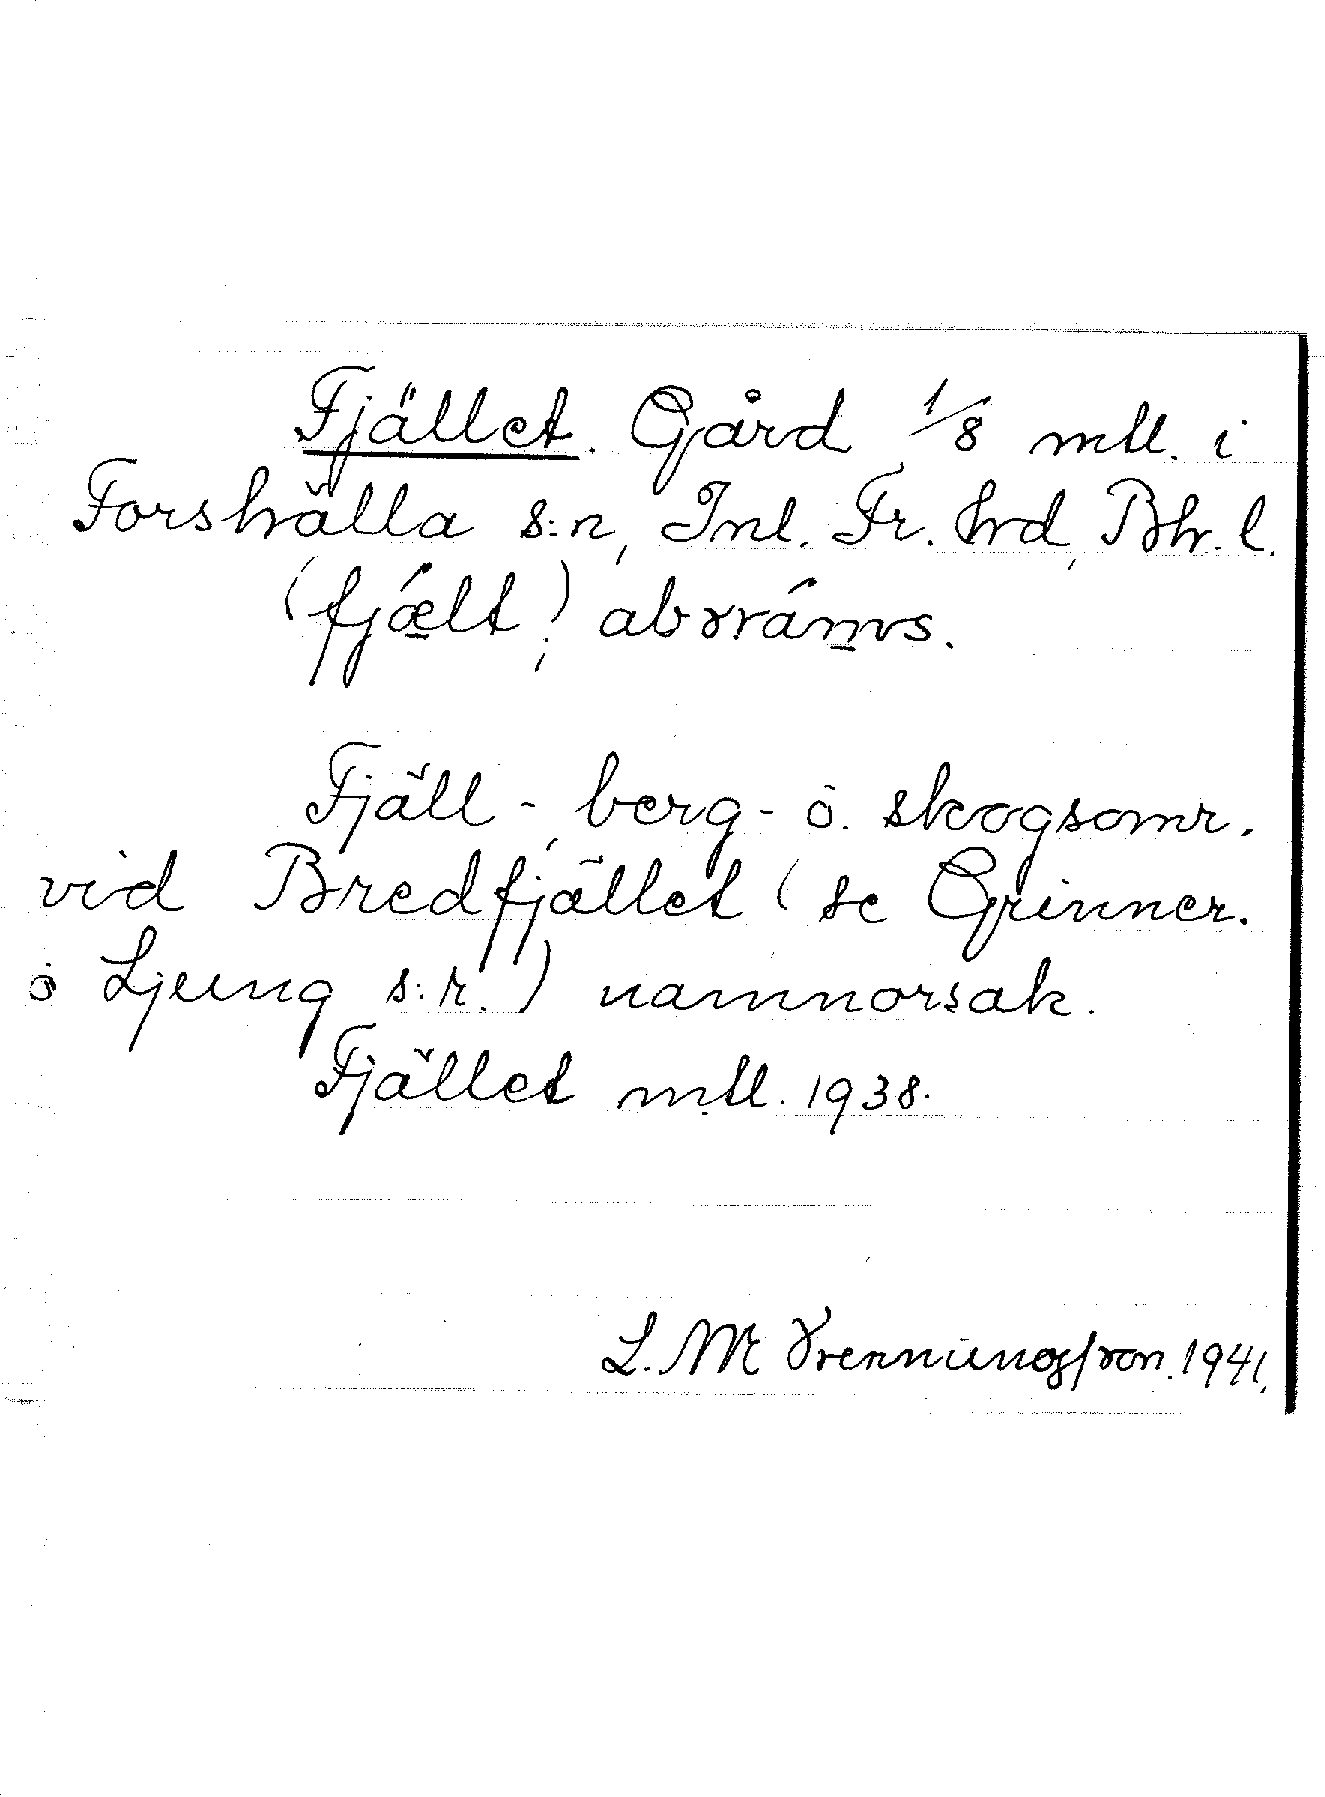 Fjället. Gård 1/8 mtl. i
Forshälla s:n, Inl. Fr. hrd, Bh. l.
(fjælt;)
Fjäll-, berg- o. skogsomr.
vid Bredfjället (se Grinner.
o Ljung s:r.) namnorsak.
Fjället mtl. 1938.
L. M 1941.